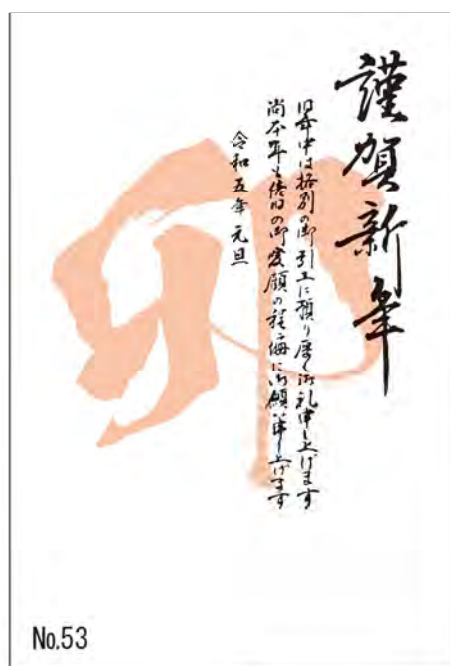 謹賀新年
旧年中は格別の御引立に預り厚く御礼申し上げます
尚本年も倍旧の御愛顧の程偏に御願い申し上げます
令和五年 元旦
卯
No.53